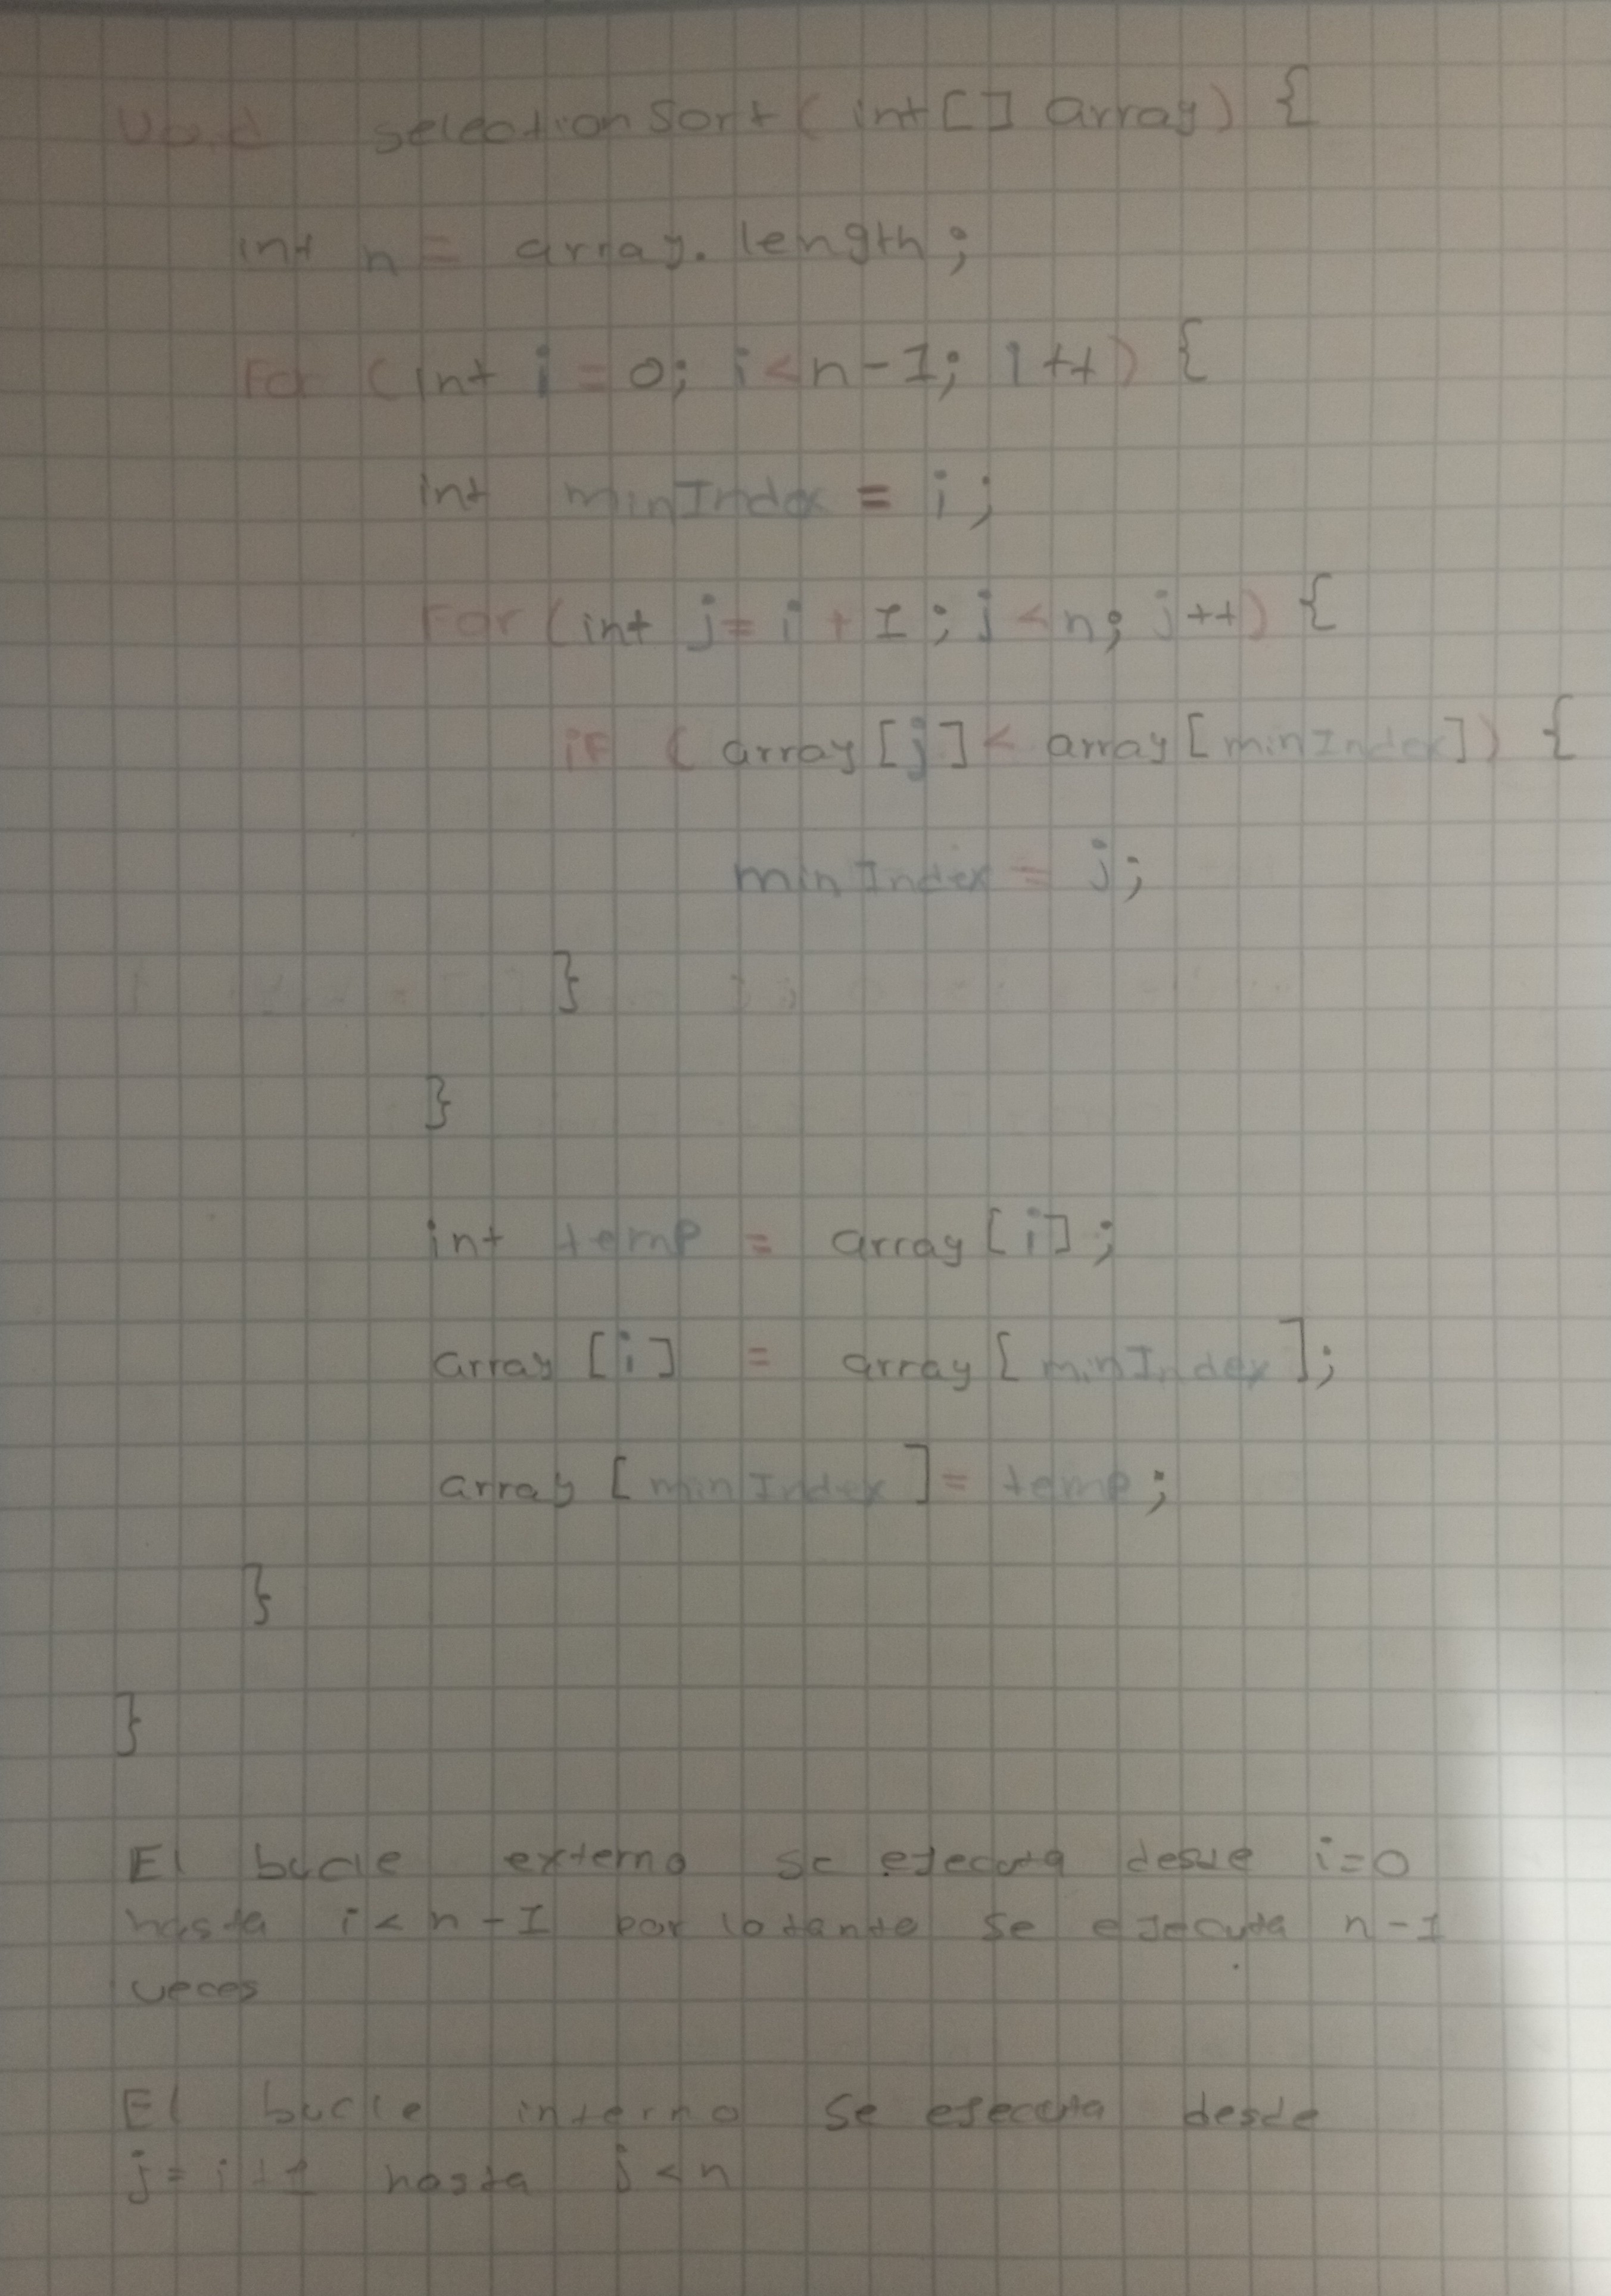 void selectionSort(int[] array) {
int n = array.length;
For (int i = 0; i < n-1; i++) {
int minIndex = i;
For (int j = i + 1; j < n; j++) {
if (array[j] < array[minIndex]) {
minIndex = j;
}
}
int temp = array[i];
array[i] = array[minIndex];
array[minIndex] = temp;
}
}
El bucle externo se ejecuta desde i=0
hasta i < n-1 por lo tanto se ejecuta n-1
veces
El bucle interno se ejecuta desde
j = i+1 hasta j < n